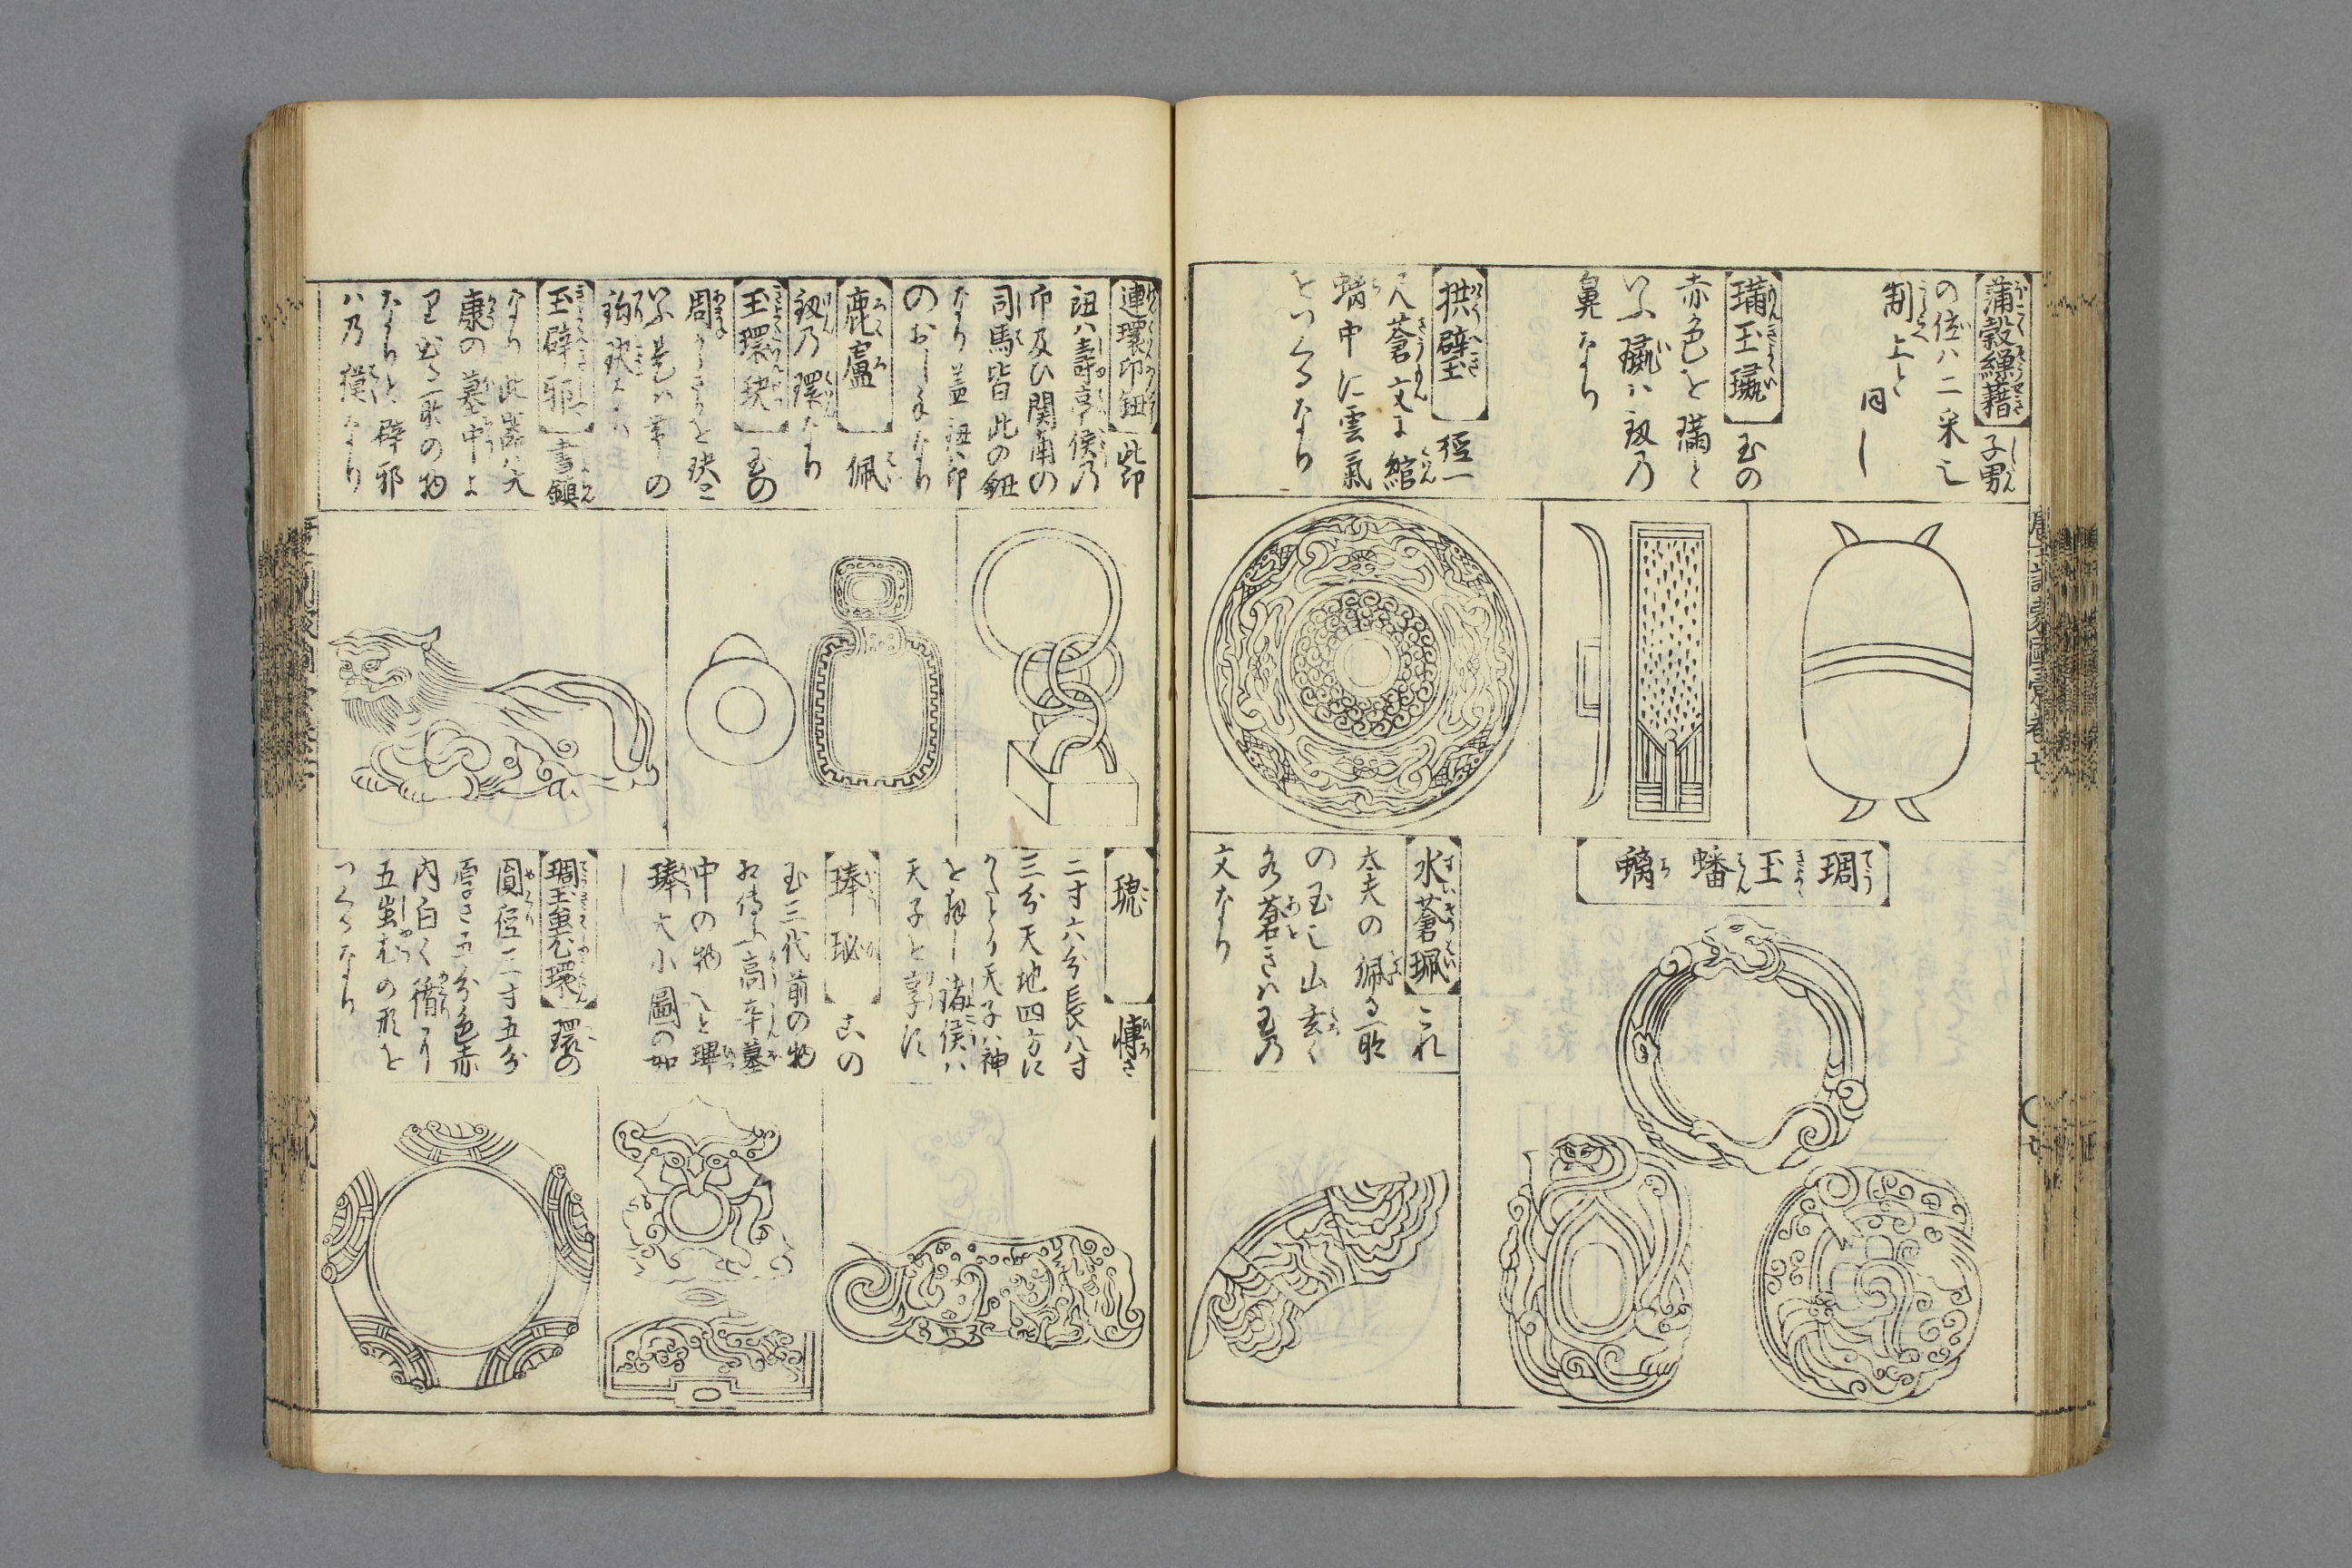 蒲穀繅藉 子男
の位ハ二采也
制上と
同し
璊玉璏 玉の
赤色を璊と
いふ璏ハ釼乃
鼻なり
拱璧 径一
尺蒼文に綰
螭中に雲氣
をつくるなり
琱玉蟠螭
水蒼珮 これ
太夫の佩る所
の玉也山玄く
水蒼きハ玉乃
文なり
連環印鈕 此印
鈕ハ壽亭侯乃
印及ひ関南の
司馬皆此の鈕
なり蓋鈕ハ印
のおし手なり
鹿盧 佩
釼乃環なり
玉環玦 玉の
周
いふ是ハ革の
鉤玦なり
玉辟邪 書鎮
なり此器ハ天
康の墓中よ
り出る所の物
なりと辟邪
ハ乃獏なり
琥 慱さ
二寸六分長八寸
三分天地四方に
かたとり天子ハ神
を拜し諸侯ハ
天子を享に
琫珌 この
玉三代前の物
相傳ふ高辛墓
中の物
琫大小圖の如
し
琱玉蚩尤環 環の
圓径二寸五分
厚さ五分色赤
内白く循り
五蚩尤の形を
つくるなり